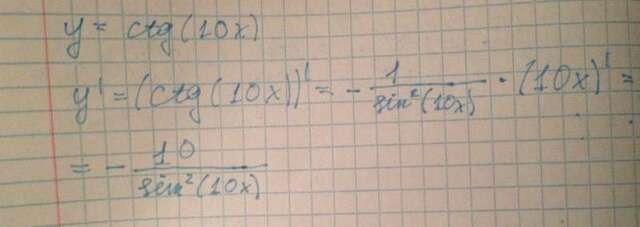 y = ctg(10x)
y' = (ctg(10x))' = - 1/sin²(10x) · (10x)' =
= - 10/sin²(10x)